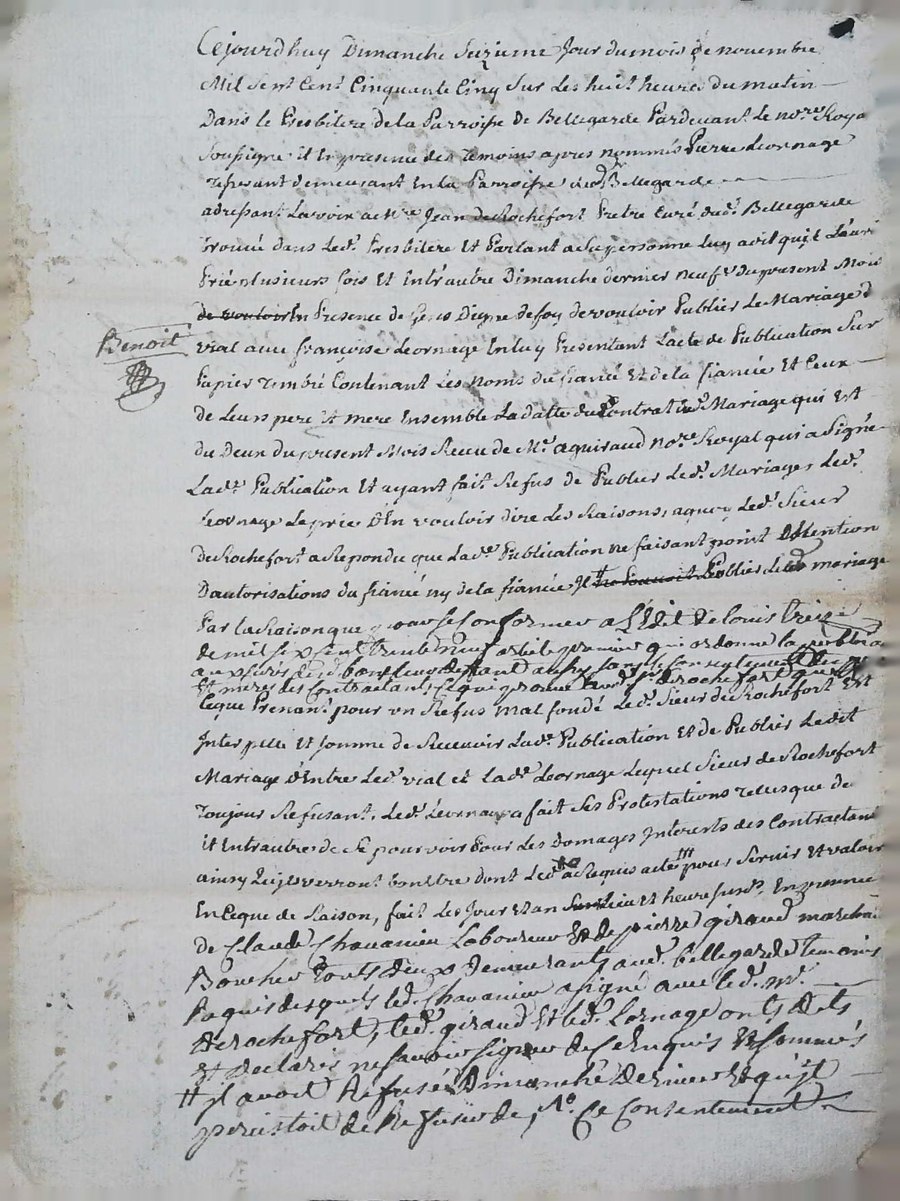 Cejourdhuy Dimanche Seizieme Jour du mois de novembre
Mil Sept Cent Cinquante Cinq Sur Les huit heures du matin
Dans le Presbitere de la Parroisse de Bellegarde Pardevant Le nore Royal
Soussigné et En presence des Temoins apres nommés Pierre Leornage
demeurant En la Parroisse dud Bellegarde
adressant La voix a Mre Jean de Rochefort Pretre Curé dud. Bellegarde
trouvé dans Led. Presbitere Et Parlant a Sa personne Luy a dit quil L'auroit
Prié plusieurs fois Et Entr'autre Dimanche dernier neuf du present Mois
de vouloir En Presence de Gens Digne de foy de vouloir Publier Le Mariage d
Benoit
vial avec françoise Leornage En luy Presentant Lacte de Publication Sur
Papier Timbré Contenant Les Noms du fiancé Et de la fiancée Et Ceux
de Leurs pere Et mere Ensemble La datte du Contrat de Mariage qui est
du Deux du present Mois Receu de Me. aguiraud nore Royal qui a Signé
Lade. Publication Et ayant fait Refus de Publier Led. Mariage, Led.
Leornage Le prie D'En vouloir dire Les Raisons, aquoy Led. Sieur
de Rochefort a Repondu que Lade Publication ne faisant point Mention
D'autorisations du fiancé ny de la fiancée Il ne Pouvoit Publier Led mariage
Par La Raison que pour se conformer a L'Edit de Louis treize
de mil six cent trente neuf article premier qui ordonne
aux curés sans le consentement des
Et meres des Contractants de Rochefort que
Ceque Prenant pour un Refus mal fondé Led. Sieur de Rochefort Est
Interpellé et Sommé de Recevoir Lade. Publication Et de Publier Ledit
Mariage D'Entre Led. vial et Lade. Leornage Lequel Sieur de Rochefort
Toujour Refusant. Led. Leornage a fait Ses Protestations telles que de
Et Entrautre de Se pourvoir Pour Les Domages Interests des Contractants
ainsy quils verront bon Etre dont Led a Requis acte pour Servir Et valoir
En Ceque de Raison, fait Les Jour Et an Lieu et heure susd. En presence
de Claude Chavanieu Laboureur Et de pierre giraud marchand
Boucher touts deux demeurants aud. bellegarde temoins
Requis desquels led. Chavanieu a signé avec led. Mr.
de rochefort, led. giraud Et led. Lornage onts dits
Et declarés ne savoir signer de ce Enquis Et sommés
# Il avoit Refusé Dimanche Dernier Et quil
persistoit de Refuser de Ce Consentement